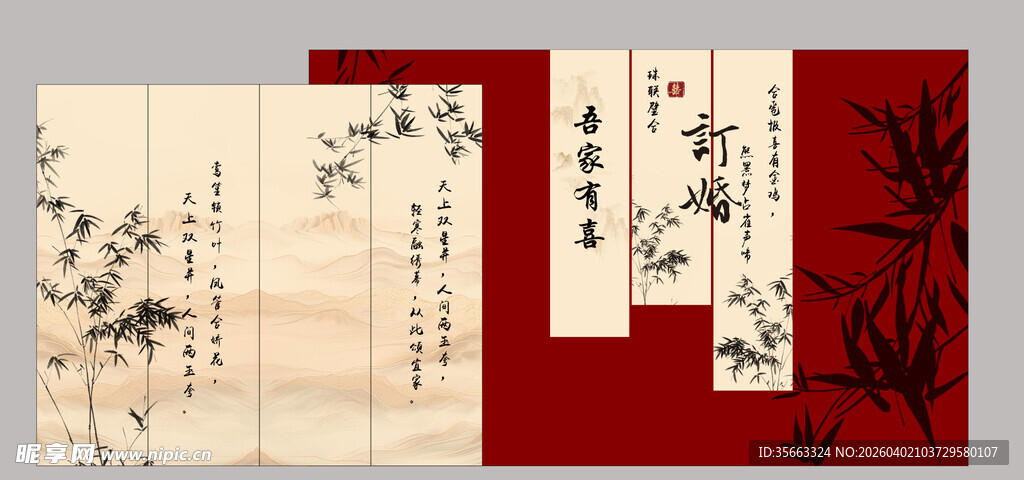 天上双星并，人间两玉夸，
轻寒融绣幕，从此颂宜家。
鸾笙领竹叶，凤管合娇花，
天上双星并，人间两玉夸。
合卺报喜有金鸡，
熊黑梦占雀声啼
訂婚
珠联璧合
囍
吾家有喜
昵享网 www.nipic.cn
ID:35663324 NO:20260402103729580107